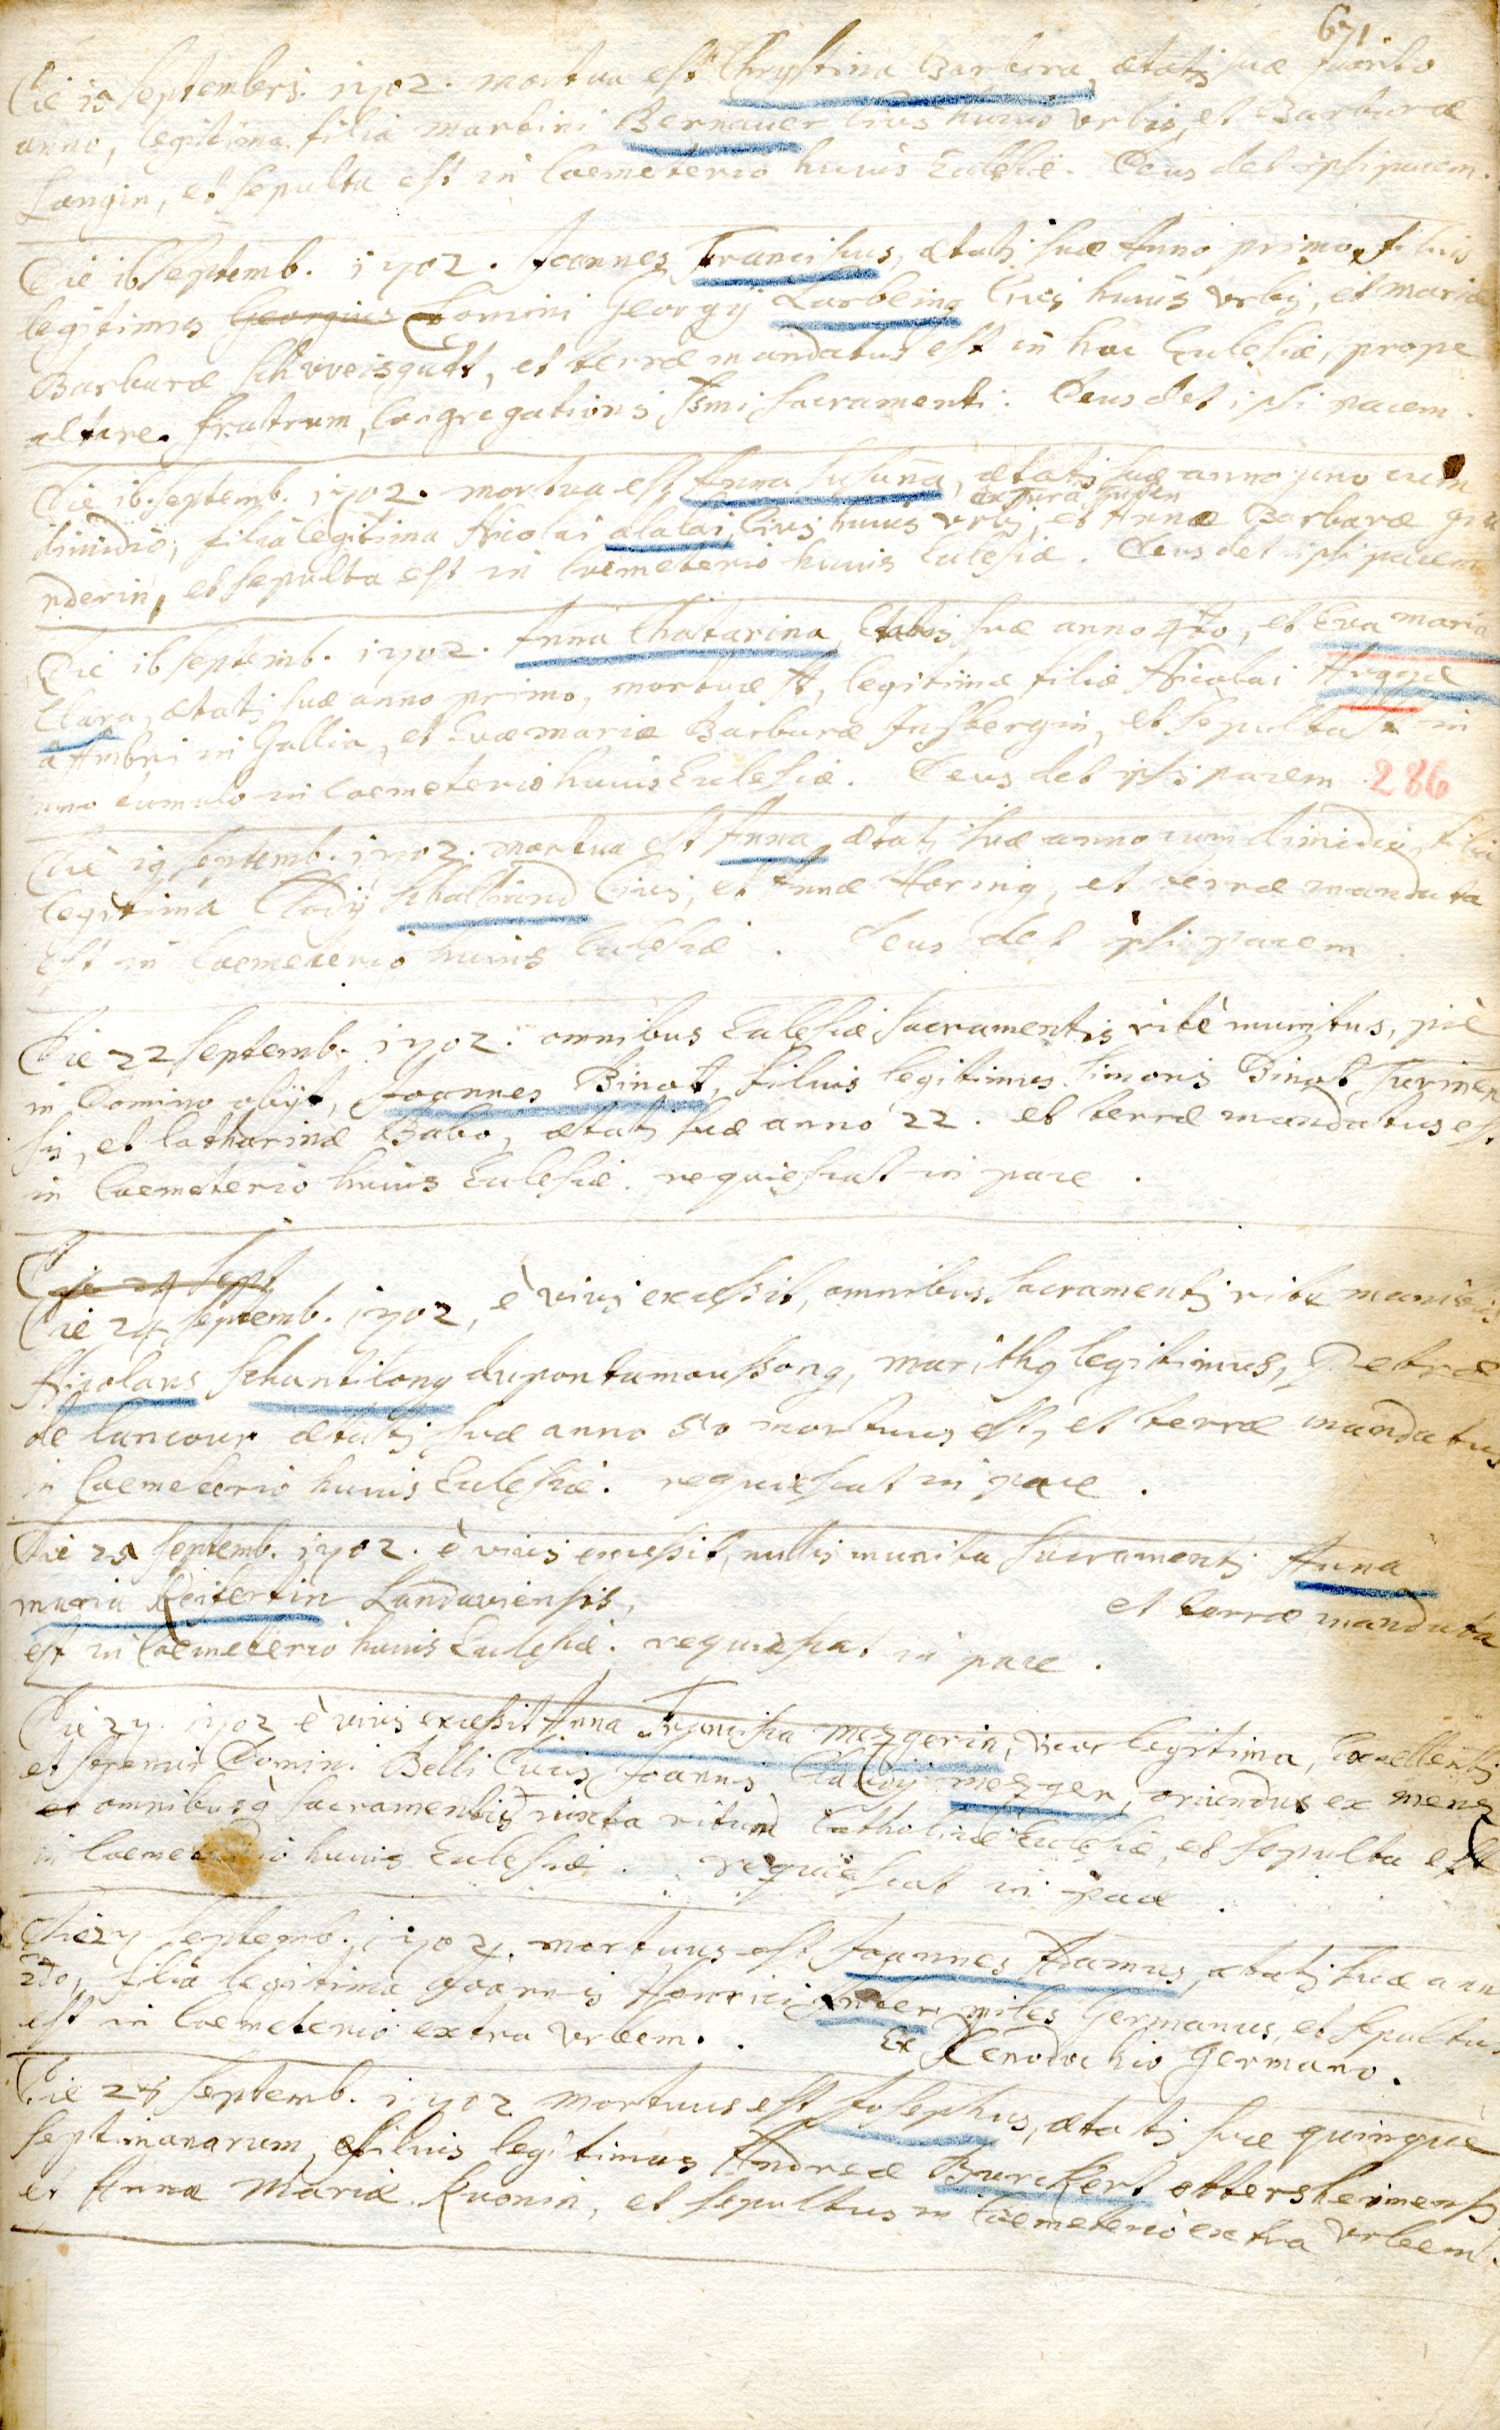 671
Die 15 Septembris 1702. mortua est Chrystina Barbara, ætatis suæ quarto
anno, legitima filia martini Bernauer Civis huius Urbis, et Barbaræ
Langin, et sepulta est in Coemeterio huius Eccleshiæ. Deus det ipsi pacem.
Die 16 septemb. 1702. Joannes Franciscus, ætatis suæ Anno primo, filius
legitimus Georgius Domini Georgij Larbeins Civis huius Urbis, et mariæ
Barbaræ Schvveisgutt, et terræ mandatus est in hac Ecclesiæ, prope
altare fratrum, Congregationis SSmi sacramenti. Deus det ipsi pacem.
Die 16. septemb. 1702. mortua est Anna Susana, ætatis suæ anno uno cum
dimidio, filia legitima Nicolai alalai, Civis huius Urbis, et Annæ Barbaræ
nderin, et sepulta est in Coemeterio huius Ecclesiæ. Deus det ipsi pacem
Die 16 septemb. 1702. Anna Chatarina Etatis suæ anno 4to, et Eva maria
Clara, ætatis suæ anno primo, mortuæ st, legitimæ filiæ Nicolai
a Ambri in Gallia, et Evæ mariæ Barbaræ Insbergin, et sepulta st in
uno tumulo in Coemeterio huius Ecclesiæ. Deus det ipsi pacem. 286
Die 19 septemb. 1702. mortua est Anna ætatis suæ anno cum dimidio, filia
legitima Clodij Schalliand Civis, et Annæ Horning, et terræ mandata
est in Coemeterio huius Ecclesiæ. Deus det ipsi pacem
Die 22 septemb. 1702. omnibus Ecclesiæ sacramentis ritè munitus, piè
in Domino obijt, Joannes Binot, filius legitimus Simonis Binot Turinen
sis, et Catharinæ Babo, ætatis suæ anno 22. et terræ mandatus est
in Coemeterio huius Ecclesiæ. requiescat in pace.
Die 24 sept
Die 24 septemb. 1702, è vivis excessit, omnibus sacramentis rite munitus
Nicolaus Schantilong dupontamoussong, marithus legitimus, Petræ
de Lancour ætatis suæ anno 50 mortuus est, et terræ mandatus
in Coemeterio huius Ecclesiæ. requiescat in pace.
Die 25 septemb. 1702. è vivis excessit, nullis munita sacramentis Anna
maria Reitertin Landaviensis, et terræ mandata
est in Coemeterio huius Ecclesiæ. requiescat in pace.
Die 27. 1702 è vivis excessit Anna Francisca Mezgerin, Uxor legitima, Excellentis
et strenui Domini Belli Ducis Joannis Claudij mezger, oriundus ex menz
et omnibusq sacramentis iuxta ritum Catholicæ Ecclesiæ, et sepulta est
in Coemeterio huius Ecclesiæ. requiescat in pace.
Die 27 septemb. 1702. mortuus est Joannes Adamus, ætatis suæ ann
2do, filia legitima Joannis Henrici miles Germanus, et sepultus
est in Coemeterio extra Urbem. Ex Xenodochio Germano.
Die 28 septemb. 1702 mortuus est Josephus, ætatis suæ quinque
septimanarum, filius legitimus Andreæ Burckert ottersheimensis
et Annæ Mariæ Kuonin, et sepultus in Coemeterio extra Urbem.